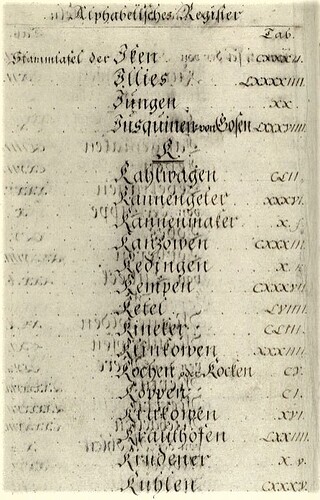 Alphabetisches Register
Tab.
Stammtafel der Iken CXXXII.
Ilies LXXXXIIII.
Jungen XX.
Jusquinen von Gosen LXXVIIII.
K
Kahlwagen CLII.
Kannengeter XXXVI.
Kannenmaker X. f.
Kanzowen CXXXIII.
Kedingen X. k.
Kempen CXXXVII.
Ketel LVIIII.
Kineker CLIII.
Klinkowen XXXIIII.
Kochen oder Kocken CV.
Köppen CI.
Krakowen XVI.
Krauthofen LXXIIII.
Krüdener X. p.
Kuhlen CXXXV.